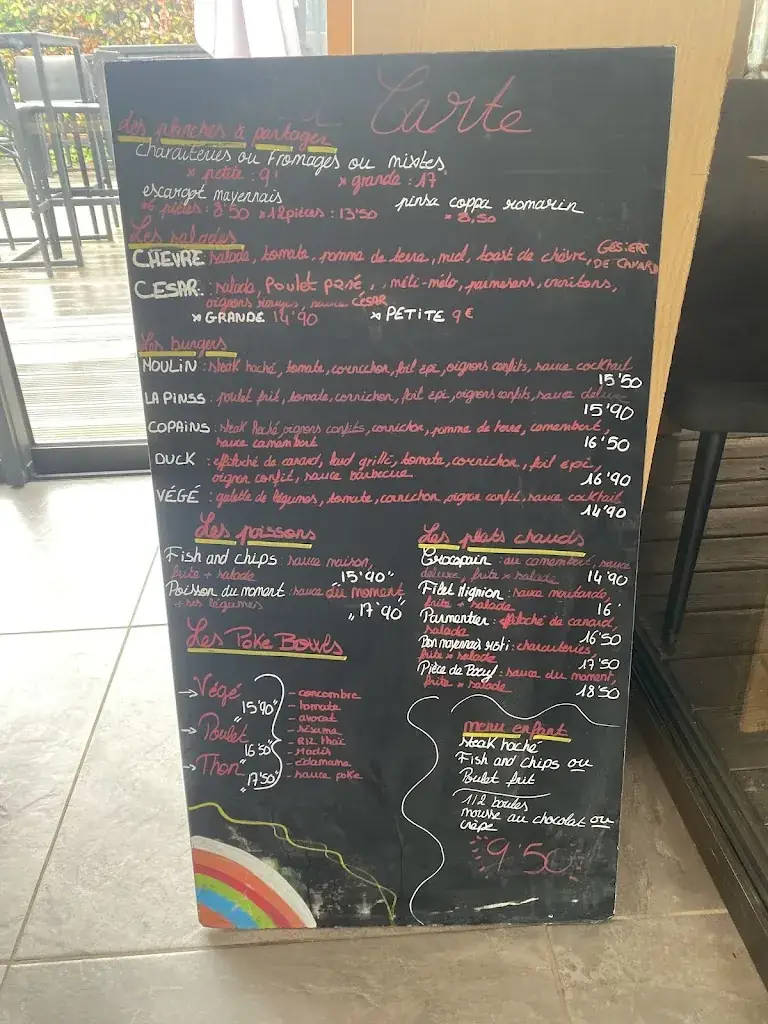 Carte
des planches à partager
charcuteries ou Fromages ou mixtes
x petite : 9' x grande : 17'
escargot mayennais pinsa coppa romarin
x 6 pièces : 8'50 x 12 pièces : 13'50 x 8,50
Les salades
CHEVRE : salade, tomate, pomme de terre, miel, toast de chèvre, GESIERS
DE CANARD
CESAR : salade, Poulet pané, méli-mélo, parmesans, croûtons,
oignons rouges, sauce CÉSAR
x GRANDE 14'90 x PETITE 9€
Les burgers
MOULIN : steak haché, tomate, cornichon, foil épi, oignons confits, sauce cocktail
15'50
LA PINSS : poulet frit, tomate, cornichon, foil épi, oignons confits, sauce deluxe
15'90
COPAINS : steak haché, oignons confits, cornichon, pomme de terre, camembert,
sauce camembert 16'50
DUCK : effiloché de canard, lard grillé, tomate, cornichon, foil épi,
oignon confit, sauce barbecue 16'90
VÉGÉ : galette de légumes, tomate, cornichon, oignon confit, sauce cocktail
14'90
Les poissons
Fish and chips : sauce maison,
frite + salade 15'40"
Poisson du moment : sauce du moment
+ ses légumes "17'90"
Les plats chauds
Crocopain : au camembert, sauce
deluxe, frite x salade 14'90
Filet Mignon : sauce moutarde,
frite + salade 16'
Parmentier : effiloché de canard,
salade 16'50
Bon mayennais rosti : charcuteries,
frite x salade 17'50
Pièce de Boeuf : sauce du moment,
frite x salade 18'50
Les Poke Bowls
→ Végé
15'90"
→ Poulet
16'50"
→ Thon
"17'50"
- concombre
- tomate
- avocat
- sésame
- Riz thaï
- radis
- édamame
- sauce poke
menu enfant
Steak haché
Fish and chips ou
Poulet frit
1/2 boules
mousse au chocolat ou
crêpe
9'50